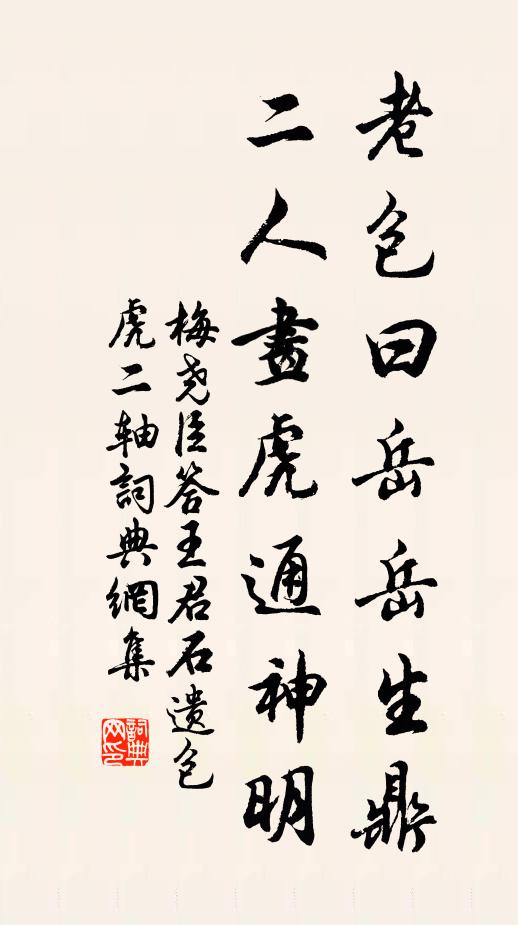 老包曰岳岳生鼎
二人畫虎通神明
梅尧臣答王君石遗包
虎二轴詞典網集
詞典网印